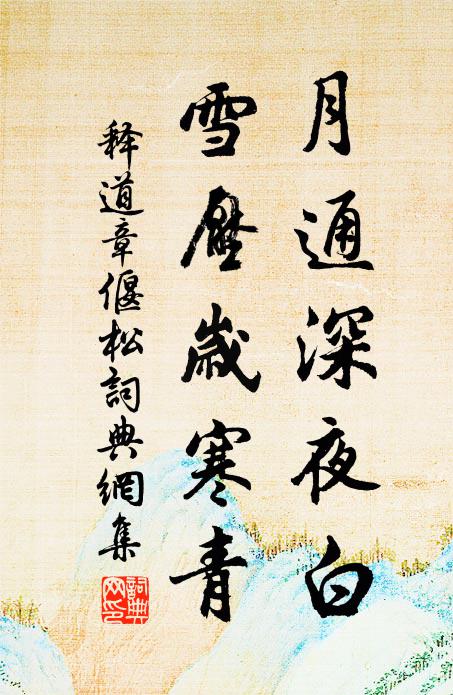 月通深夜白
雪壓歲寒青
释道章偃松詞典網集
詞典網印